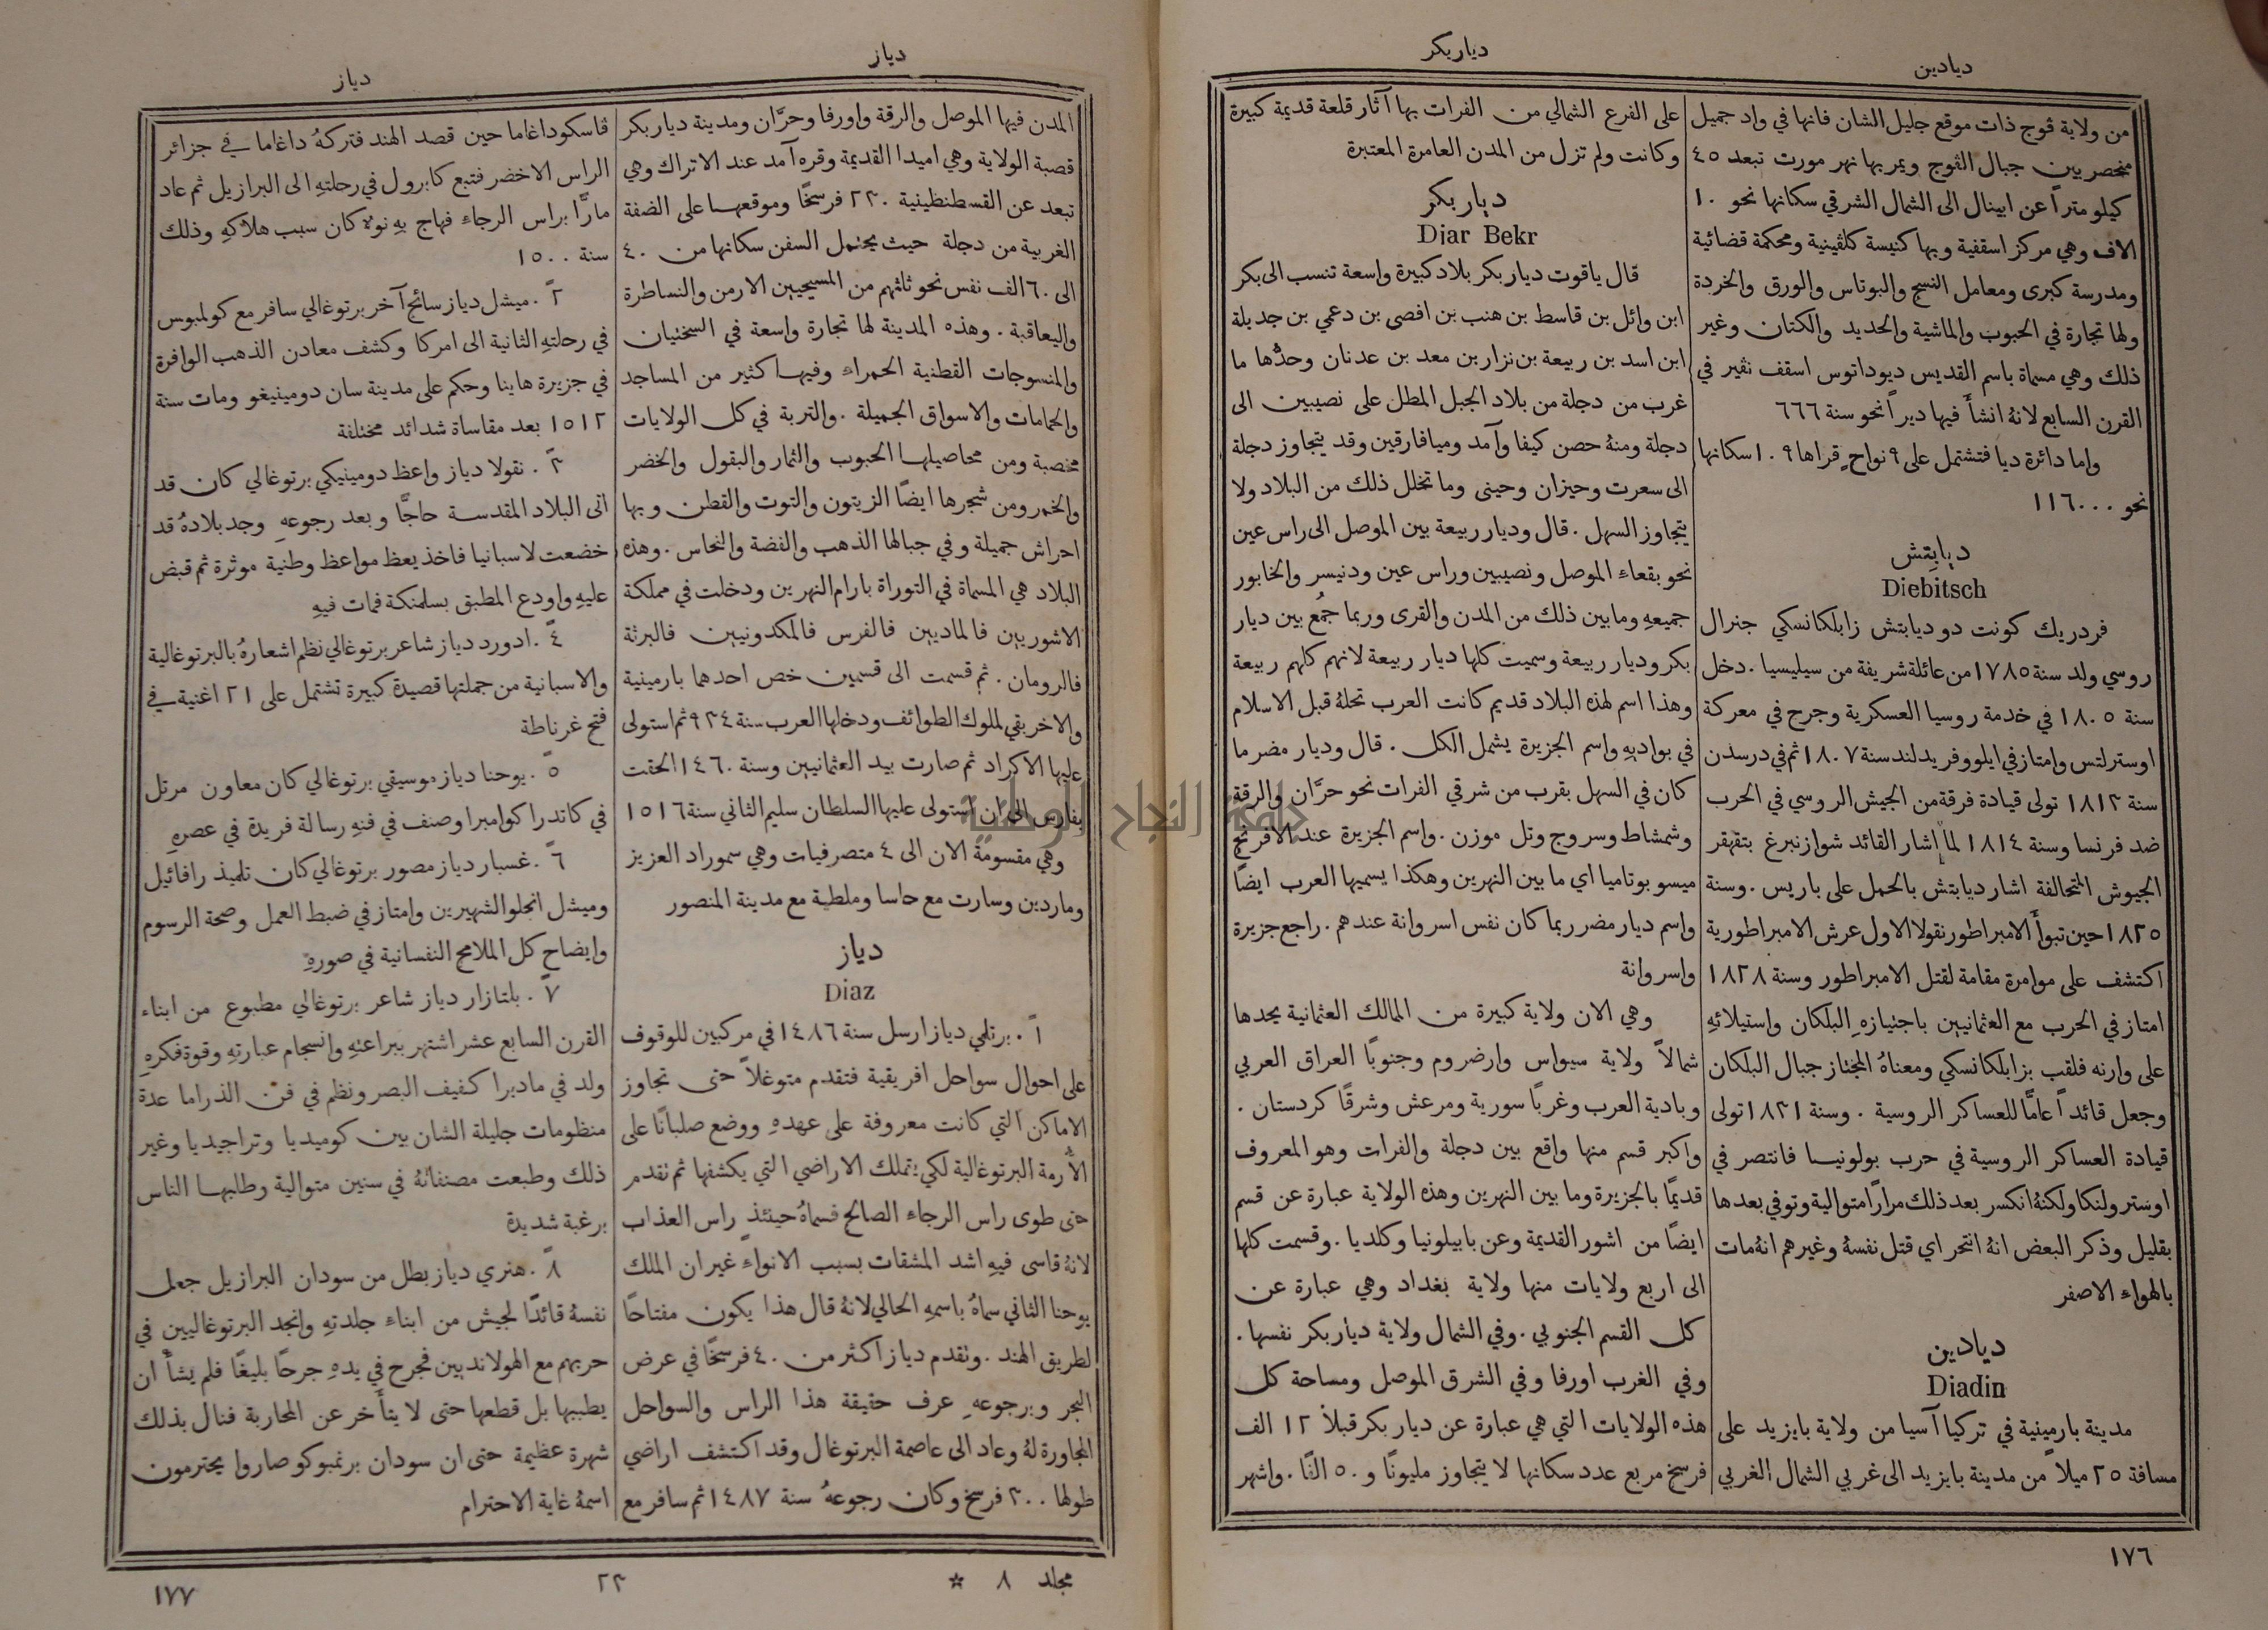 ديادين
دياربكر
من ولاية ڤوج ذات موقع جليل الشان فانها في واد جميل
منحصر بين جبال الڤوج ويمر بها نهر مورت تبعد ٤٥
كيلو مترًا عن ابينال الى الشمال الشرقي سكانها نحو ١٠
الاف وهي مركز اسقفية وبها كنيسة كلڤينية ومحكمة قضائية
ومدرسة كبرى ومعامل النسج والبوتاس والورق والخردة
ولها تجارة في الحبوب والماشية والحديد والكتان وغير
ذلك وهي مسماة باسم القديس ديوداتوس اسقف نڤير في
القرن السابع لانهُ انشأَ فيها ديرًا نحو سنة ٦٦٦
واما دائرة ديا فتشتمل على ٩ نواحٍ قراها ١٠٩ سكانها
نحو ١١٦٠٠٠
ديابِتش
Diebitsch
فردريك كونت دو ديابتش زابلكانسكي جنرال
روسي ولد سنة ١٧٨٥ من عائلة شريفة من سيليسيا . دخل
سنة ١٨٠٥ في خدمة روسيا العسكرية وجرح في معركة
اوسترلتس وامتاز في ايلو وفريدلند سنة ١٨٠٧ ثم في درسدن
سنة ١٨١٣ تولى قيادة فرقة من الجيش الروسي في الحرب
ضد فرنسا وسنة ١٨١٤ لما اشار القائد شوازنبرغ بتقهقر
الجيوش المتحالفة اشار ديابتش بالحمل على باريس . وسنة
١٨٢٥ حين تبوأَ الامبراطور نقولا الاول عرش الامبراطورية
اكتشف على موامرة مقامة لقتل الامبراطور وسنة ١٨٢٨
امتاز في الحرب مع العثمانيين باجتيازهِ البلكان واستيلائهِ
على وارنه فلقب بزابلكانسكي ومعناهُ المجتاز جبال البلكان
وجعل قائدًا عامًّا للعساكر الروسية . وسنة ١٨٣١ تولى
قيادة العساكر الروسية في حرب بولونيا فانتصر في
اوسترولنكا ولكنهُ انكسر بعد ذلك مرارًا متوالية وتوفي بعدها
بقليل وذكر البعض انهُ انتحر اي قتل نفسهُ وغيرهم انهُ مات
بالهواء الاصفر
ديادين
Diadin
مدينة بارمينية في تركيا آسيا من ولاية بايزيد على
مسافة ٢٥ ميلاً من مدينة بايزيد الى غربي الشمال الغربي
على الفرع الشمالي من الفرات بها آثار قلعة قديمة كبيرة
وكانت ولم تزل من المدن العامرة المعتبرة
دياربكر
Diar Bekr
قال ياقوت دياربكر بلاد كبيرة واسعة تنسب الى بكر
ابن وائل بن قاسط بن هنب بن افصى بن دعمي بن جديلة
ابن اسد بن ربيعة بن نزار بن معد بن عدنان وحدُّها ما
غرب من دجلة من بلاد الجبل المطل على نصيبين الى
دجلة ومنهُ حصن كيفا وآمد وميافارقين وقد يتجاوز دجلة
الى سعرت وحيزان وحيني وما تخلل ذلك من البلاد ولا
يتجاوز السهل . قال وديار ربيعة بين الموصل الى راس عين
نحو بقعاء الموصل ونصيبين وراس عين ودنيسر والخابور
جميعهِ وما بين ذلك من المدن والقرى وربما جُمع بين ديار
بكر وديار ربيعة وسميت كلها ديار ربيعة لانهم كلهم ربيعة
وهذا اسم لهذه البلاد قديم كانت العرب تحلهُ قبل الاسلام
في بواديهِ واسم الجزيرة يشمل الكل . قال وديار مضر ما
كان في السهل بقرب من شرقي الفرات نحو حرَّان والرقة
وشمشاط وسروج وتل موزن . واسم الجزيرة عند الافرنج
ميسوبوتاميا اي ما بين النهرين وهكذا يسميها العرب ايضًا
واسم ديار مضر ربما كان نفس اسروانة عندهم . راجع جزيرة
واسروانة
وهي الان ولاية كبيرة من المالك العثمانية يحدها
شمالاً ولاية سيواس وارضروم وجنوبًا العراق العربي
وبادية العرب وغربًا سورية ومرعش وشرقًا كردستان .
واكبر قسم منها واقع بين دجلة والفرات وهو المعروف
قديمًا بالجزيرة وما بين النهرين وهذه الولاية عبارة عن قسم
ايضًا من اشور القديمة وعن بابيلونيا وكلديا . وقسمت كلها
الى اربع ولايات منها ولاية بغداد وهي عبارة عن
كل القسم الجنوبي . وفي الشمال ولاية دياربكر نفسها .
وفي الغرب اورفا وفي الشرق الموصل ومساحة كل
هذه الولايات التي هي عبارة عن دياربكر قبلاً ١٢ الف
فرسخ مربع عدد سكانها لا يتجاوز مليونًا و٥٠ الفًا . واشهر
١٧٦
دياز
دياز
المدن فيها الموصل والرقة واورفا وحرَّان ومدينة دياربكر
قصبة الولاية وهي اميدا القديمة وقره آمد عند الاتراك وهي
تبعد عن القسطنطينية ٢٣٠ فرسخًا وموقعها على الضفة
الغربية من دجلة حيث يحتمل السفن سكانها من ٤٠
الى ٦٠ الف نفس نحو ثلثهم من المسيحيين الارمن والنساطرة
واليعاقبة . وهذه المدينة لها تجارة واسعة في السختيان
والمنسوجات القطنية الحمراء وفيها كثير من المساجد
والحمامات والاسواق الجميلة . والتربة في كل الولايات
مخصبة ومن محاصيلها الحبوب والثمار والبقول والخضر
والخمر ومن شجرها ايضًا الزيتون والتوت والقطن وبها
احراش جميلة وفي جبالها الذهب والفضة والنحاس . وهذه
البلاد هي المسماة في التوراة بارام النهرين ودخلت في مملكة
الاشوريين فالماديين فالفرس فالمكدونيين فالبرثة
فالرومان . ثم قسمت الى قسمين خص احدهما بارمينية
والاخر بقي لملوك الطوائف ودخلها العرب سنة ٩٣٤ ثم استولى
عليها الاكراد ثم صارت بيد العثمانيين وسنة ١٤٦٠ الحقت
بفارس الى ان استولى عليها السلطان سليم الثاني سنة ١٥١٦
وهي مقسومة الان الى ٤ متصرفيات وهي سموراد العزيز
وماردين وسارت مع حاسا وملطية مع مدينة المنصور
دياز
Diaz
١ً . برتلمي دياز ارسل سنة ١٤٨٦ في مركبين للوقوف
على احوال سواحل افريقية فتقدم متوغلاً حتى تجاوز
الاماكن التي كانت معروفة على عهدهِ ووضع صلبانًا على
الأرمة البرتوغالية لكي يتملك الاراضي التي يكشفها ثم تقدم
حتى طوى راس الرجاء الصالح فسماهُ حينئذٍ راس العذاب
لانهُ قاسى فيهِ اشد المشقات بسبب الانواء غير ان الملك
يوحنا الثاني سماهُ باسمهِ الحالي لانهُ قال هذا يكون مفتاحًا
لطريق الهند . وتقدم دياز اكثر من ٤٠ فرسخًا في عرض
البحر وبرجوعهِ عرف حقيقة هذا الراس والسواحل
المجاورة لهُ وعاد الى عاصمة البرتوغال وقد اكتشف اراضي
طولها ٣٠٠ فرسخ وكان رجوعهُ سنة ١٤٨٧ ثم سافر مع
ڤاسكوداغاما حين قصد الهند فتركهُ داغاما في جزائر
الراس الاخضر فتبع كابرول في رحلتهِ الى البرازيل ثم عاد
مارًّا براس الرجاء فهاج بهِ نوء كان سبب هلاكهِ وذلك
سنة ١٥٠٠
٢ً . ميشل دياز سائح آخر برتوغالي سافر مع كولمبوس
في رحلتهِ الثانية الى امركا وكشف معادن الذهب الوافرة
في جزيرة هاينا وحكم على مدينة سان دومينيغو ومات سنة
١٥١٢ بعد مقاساة شدائد مختلفة
٣ً . نقولا دياز واعظ دومينيكي برتوغالي كان قد
اتى البلاد المقدسة حاجًّا وبعد رجوعهِ وجد بلادهُ قد
خضعت لاسبانيا فاخذ يعظ مواعظ وطنية موثرة ثم قبض
عليهِ واودع المطبق بسلمنكة فمات فيهِ
٤ً . ادورد دياز شاعر برتوغالي نظم اشعارهُ بالبرتوغالية
والاسبانية من جملتها قصيدة كبيرة تشتمل على ٢١ اغنية في
فتح غرناطة
٥ً . يوحنا دياز موسيقي برتوغالي كان معاون مرتل
في كاتدرا كوامبرا وصنف في فنهِ رسالة فريدة في عصرهِ
٦ً . غسبار دياز مصور برتوغالي كان تلميذ رافائيل
وميشل انجلو الشهيرين وامتاز في ضبط العمل وصحة الرسوم
وايضاح كل الملامح النفسانية في صورهِ
٧ً . بلتازار دياز شاعر برتوغالي مطبوع من ابناء
القرن السابع عشر اشتهر ببراعتهِ وانسجام عبارتهِ وقوة فكرهِ
ولد في ماديرا كفيف البصر ونظم في فن الذراما عدة
منظومات جليلة الشان بين كوميديا وتراجيديا وغير
ذلك وطبعت مصنفاتهُ في سنين متوالية وطلبها الناس
برغبة شديدة
٨ً . هنري دياز بطل من سودان البرازيل جعل
نفسهُ قائدًا لجيش من ابناء جلدتهِ وانجد البرتوغاليين في
حربهم مع الهولانديين فجرح في يدهِ جرحًا بليغًا فلم يشأْ ان
يطببها بل قطعها حتى لا يتأَخر عن المحاربة فنال بذلك
شهرة عظيمة حتى ان سودان برنمبوكو صاروا يحترمون
اسمهُ غاية الاحترام
مجلد ٨ ☆
٢٣
١٧٧
جامعة النجاح الوطنية